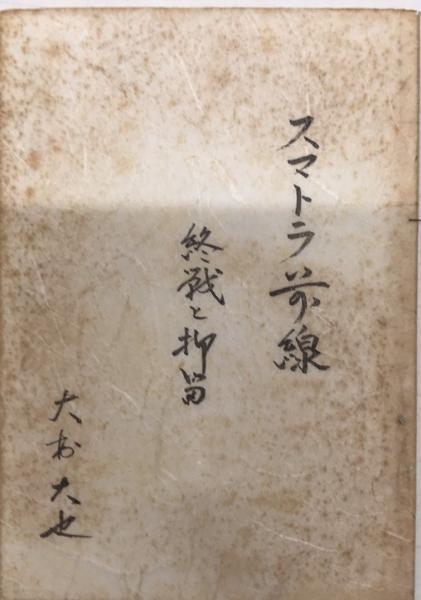 スマトラ前線
終戦と抑留
大村大也